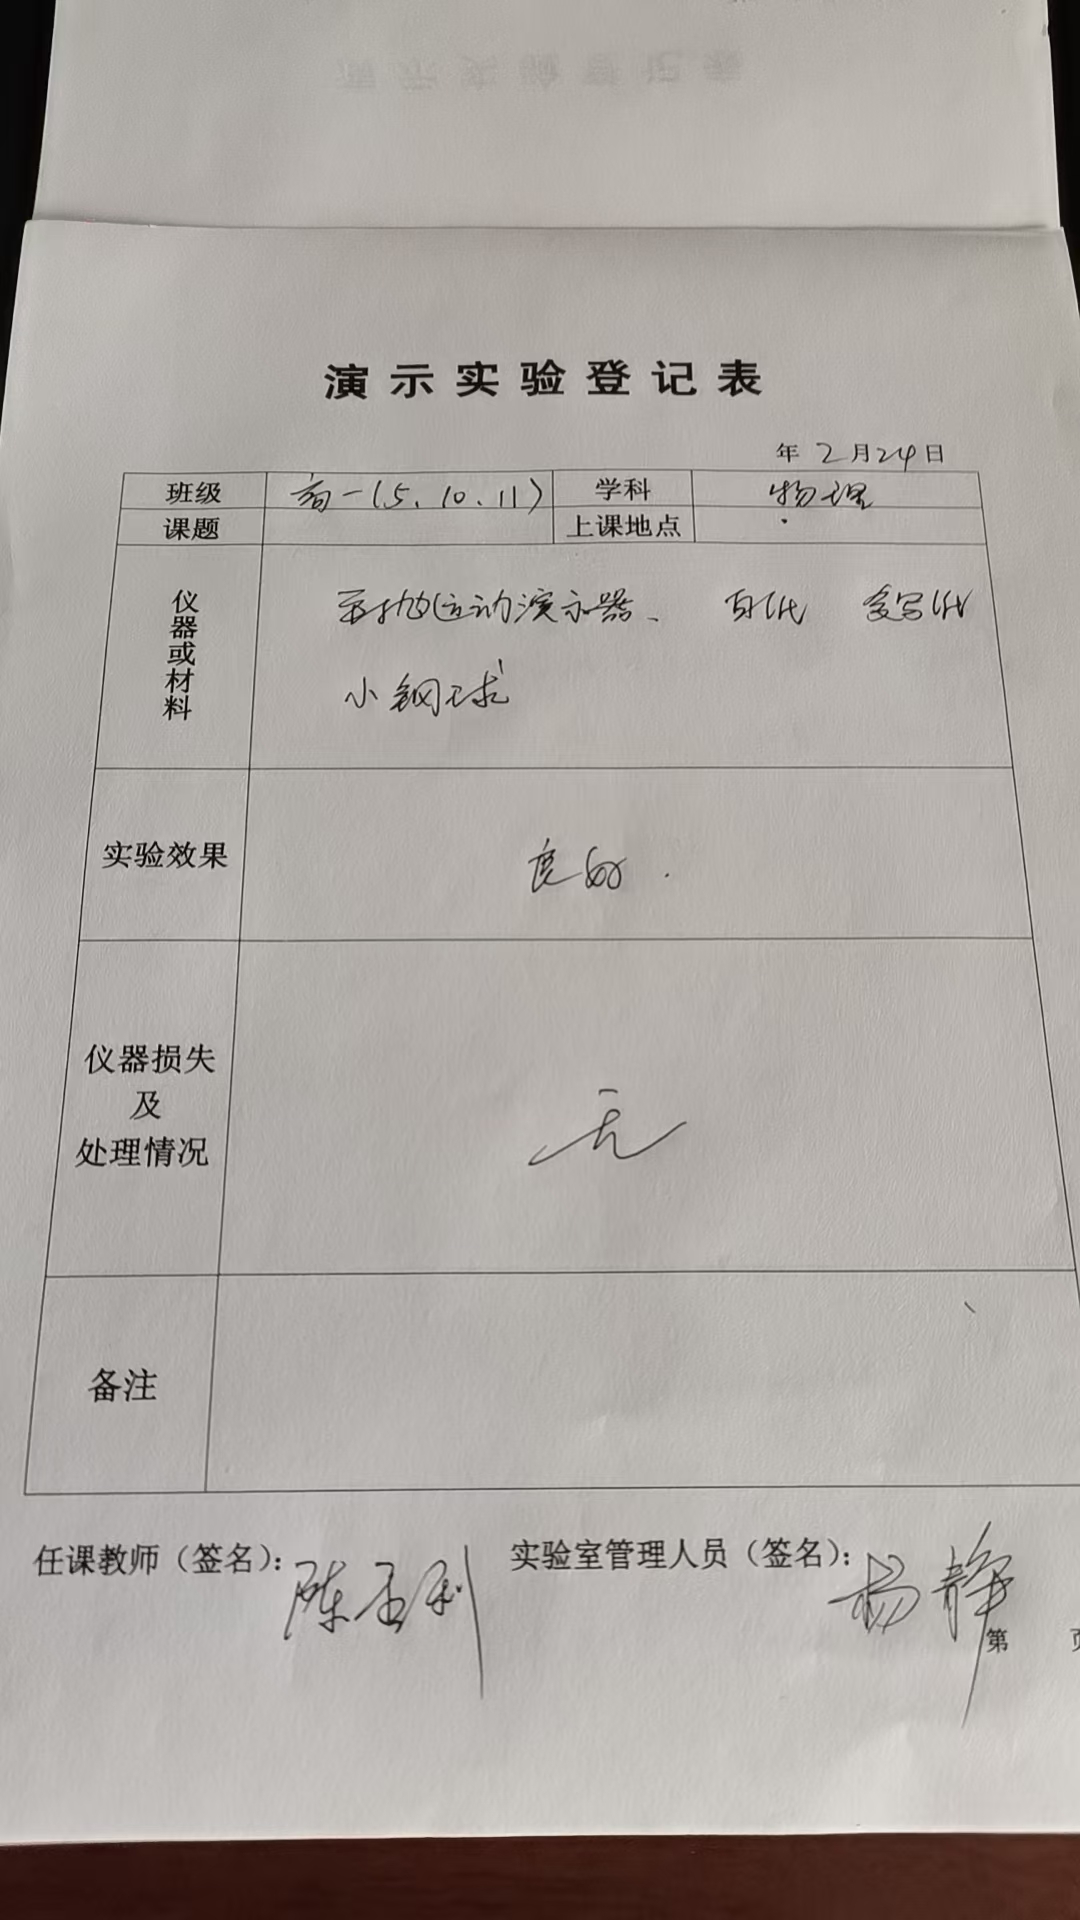 演示实验登记表
年 2月24日
班级 高一(5、10、11) 学科 物理
课题 上课地点
仪器或材料 平抛运动演示器、 白纸 复写纸
小钢球
实验效果 良好.
仪器损失
及
处理情况 无
备注
任课教师（签名）: 陈利 实验室管理人员（签名）: 杨静
第 页